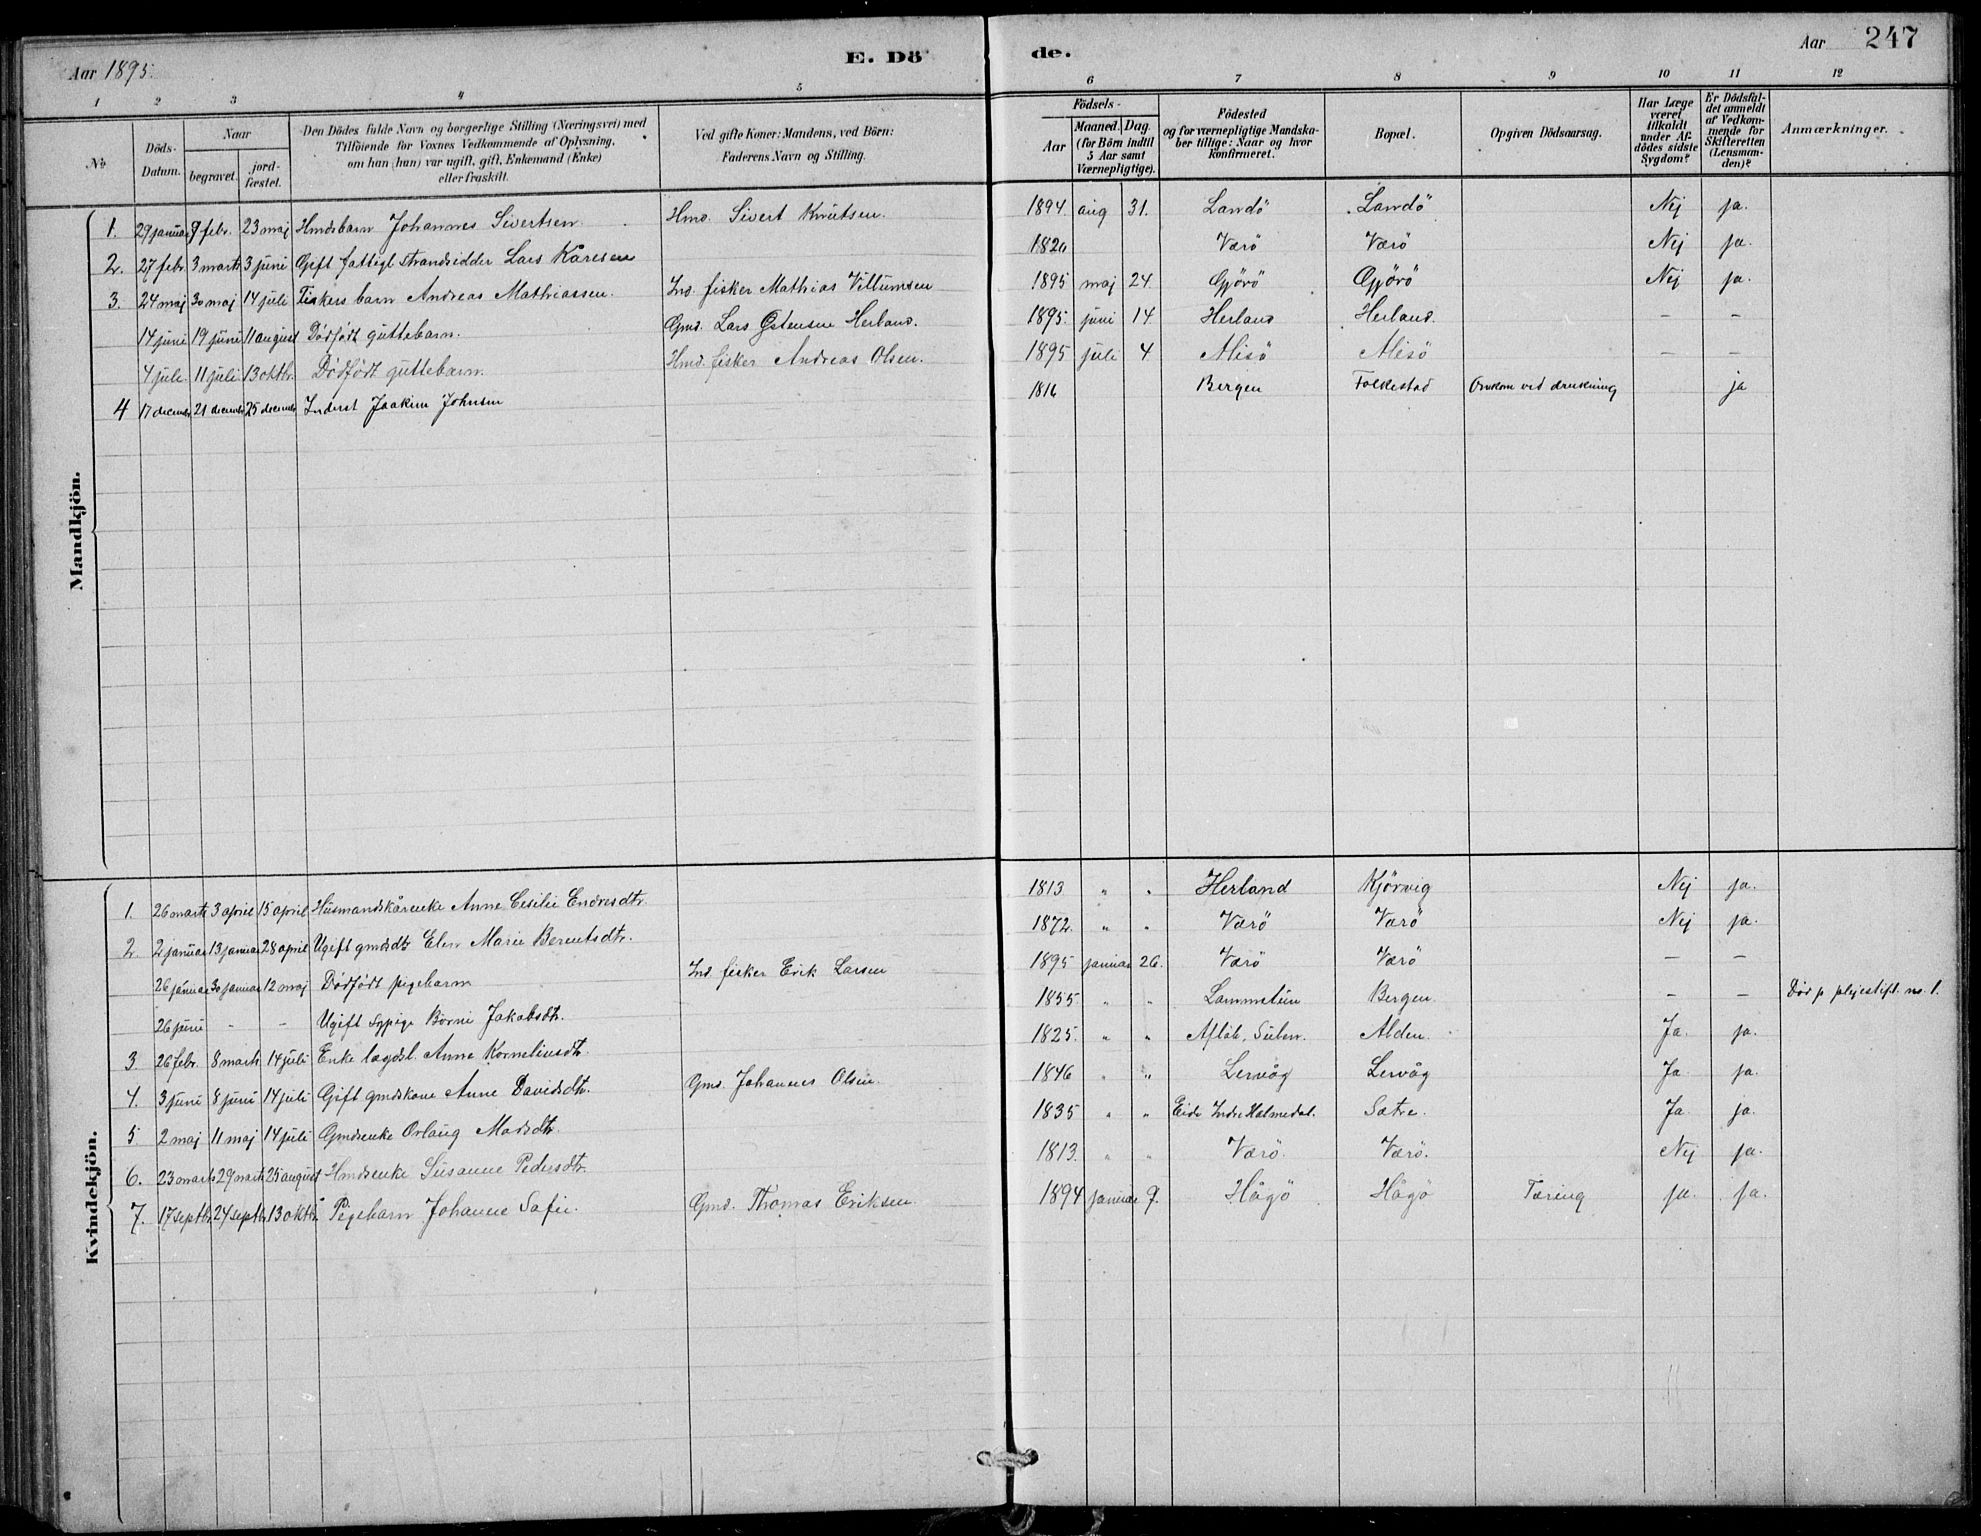 Aar 1895.
E. Dö
de.
Aar 247
1 2 3 4 5 6 7 8 9 10 11 12
No
Döds-Datum.
Naar
begravet.
jord-fæstet.
Den Dödes fulde Navn og borgerlige Stilling (Næringsvei) med
Tilföiende for Voxnes Vedkommende af Oplysning,
om han (hun) var ugift, gift, Enkemand (Enke)
eller fraskilt.
Ved gifte Koner: Mandens, ved Börn:
Faderens Navn og Stilling.
Födsels-
Aar
Maaned. Dag.
(for Börn indtil
5 Aar samt
Værnepligtige).
Födested
og for værnepligtige Mandska-
ber tillige: Naar og hvor
konfirmeret.
Bopæl.
Opgiven Dödsaarsag.
Har Læge
været
tilkaldt
under Af-
dödes sidste
Sygdom?
Er Dödsfal-
det anmeldt
af Vedkom-
mende for
Skifteretten
(Lensman-
den)?
Anmærkninger.
Mandkjön.
1. 29 januar 9 febr. 23 maj Hmdsbarn Johannes Sivertsen. Hmd. Sivert Knutsen. 1894. aug 31. Landö Landö Nej ja.
2. 27 febr. 3 marts 3 juni Gift fattigl. strandsidder Lars Kåresen 1820 Værö Værö Nej ja.
3. 24 maj 30 maj 14 juli Fiskers barn Andreas Mathiassen. Ind. fisker Mathias Villumsen 1895 maj 24. Gjörö Gjörö Nej ja.
14 juni 19 juni 11 august Dödfödt guttebarn. Gmd. Lars Östensen Herland. 1895. juni 14. Herland Herland. – –
4 juli 11 juli 13 oktbr. Dödfödt guttebarn. Hmd. fisker Andreas Olsen. 1895 juli 4. Alisö Alisö – –
4 17 decembr. 21 decembr. 25 decembr. Inderst Joakim Johnsen 1816 Bergen Folkestad Omkom ved drukning ja
Kvindekjön.
1. 26 marts 3 april 15 april Husmandskårenke Anne Cesilie Endresdtr. 1813 " " Herland Kjörvig Nej ja.
2. 2 januar 13 januar 28 april Ugift gmdsdtr. Elen Marie Berentsdtr. 1872. " " Værö Værö Nej ja.
26 januar 30 januar 12 maj Dödfödt pigebarn Ind. fisker Erik Larsen 1895 januar 26. Værö Værö – –
26 juni - - Ugift sypige Börni Jakobsdtr. 1855. " " Bergen. – – Död p. plejestift. no. 1.
3 26 febr. 8 marts 14 juli Enke lægdsl. Anne Korneliusdtr. 1825. " " Alden. Ja. ja.
4. 3 juni 8 juni 14 juli Gift gmdskone Anne Davidsdtr. Gmd. Johannes Olsen. 1846 " " Lervåg Lervåg Ja ja.
5. 2 maj 11 maj 14 juli Gmdsenke Orlaug Madsdtr. 1835 " " Eide Indre Holmedal. Sætre. Ja ja.
6. 23 marts 29 marts 25 august Hmdsenke Susanne Pedersdtr. 1813. " " Værö. Værö. Nej ja.
7. 17 septbr. 24 septbr. 13 oktbr. Pigebarn Johanne Sofie. Gmd. Thomas Eriksen. 1894 januar 9. Hågö Hågö Tæring ja. ja.